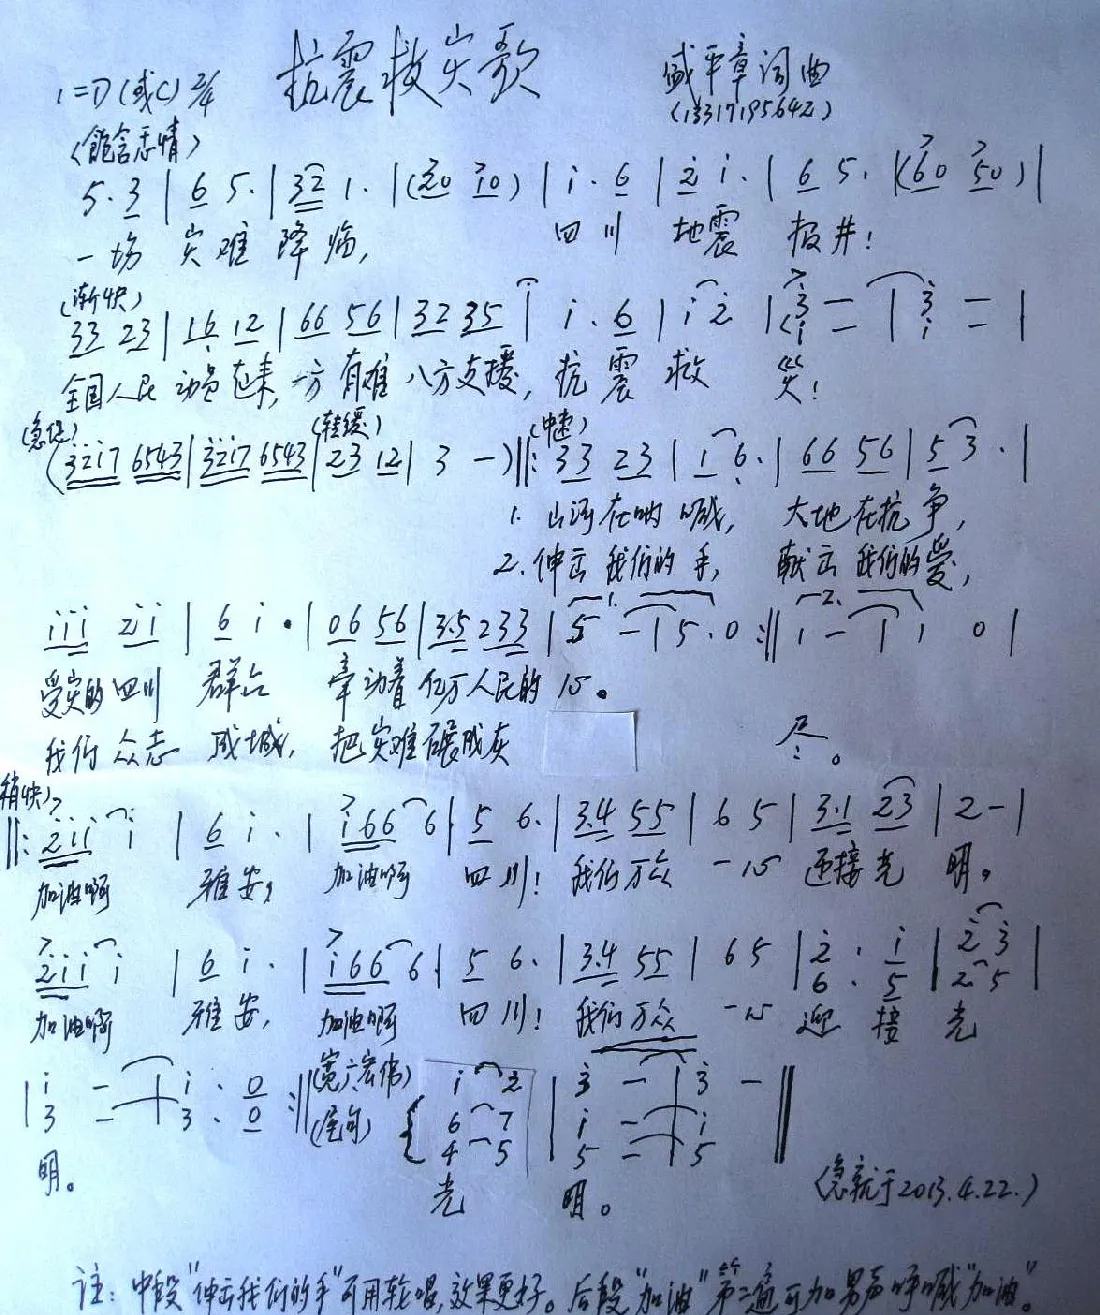 抗震救灾歌
1=D(或C) 2/4
盛平章词曲
(13317195642)
(饱含悲情)
5. 3 | 6 5. | 32 1. | (20 10) | i. 6 | 2 i. | 6 5. | (60 50) |
一场 灾难 降临, 四川 地震 报井!
(渐快)
33 23 | 16 12 | 66 56 | 32 35 | i. 6 | i 2 | 3 — | 3 — |
1 — | 1 — |
全国人民 动员起来, 一方有难 八方支援, 抗震救 灾!
(急促) (轻缓) (中速)
(32i7 6543 | 32i7 6543 | 23 12 | 3 —) ‖: 33 23 | 1 6. | 66 56 | 5 3. |
1. 山河在呐喊, 大地在抗争,
2. 伸出我们的手, 献出我们的爱,
iii 2i | 6 i. | 06 56 | 3.5 233 | 5 — | 5. 0 :‖ 1 — | 1 0 |
受灾的四川 群众 牵动着亿万人民的心。
我们众志 成城, 把灾难碾成灰 尽。
稍快
‖: 2ii i | 6 i. | i66 6 | 5 6. | 3.4 55 | 6 5 | 3.1 23 | 2 — |
加油啊 雅安, 加油啊 四川! 我们万众 一心 迎接光 明。
2ii i | 6 i. | i66 6. | 5 6. | 3.4 55 | 6 5 | 2. i | 2 3 |
6. 5 | 2 5 |
加油啊 雅安, 加油啊 四川! 我们万众 一心 迎接光
| i — | i. 0 :‖ (宽广宏伟) i 2 | 3 — | 3 — ‖
3 — | 3. 0 (尾句) 6 7 | i — | i
4 5 | 5 — | 5
明。 光 明。
(急就于2013.4.22.)
注: 中段"伸出我们的手"可用轮唱,效果更好。后段"加油"第二遍可加男声呐喊"加油"。